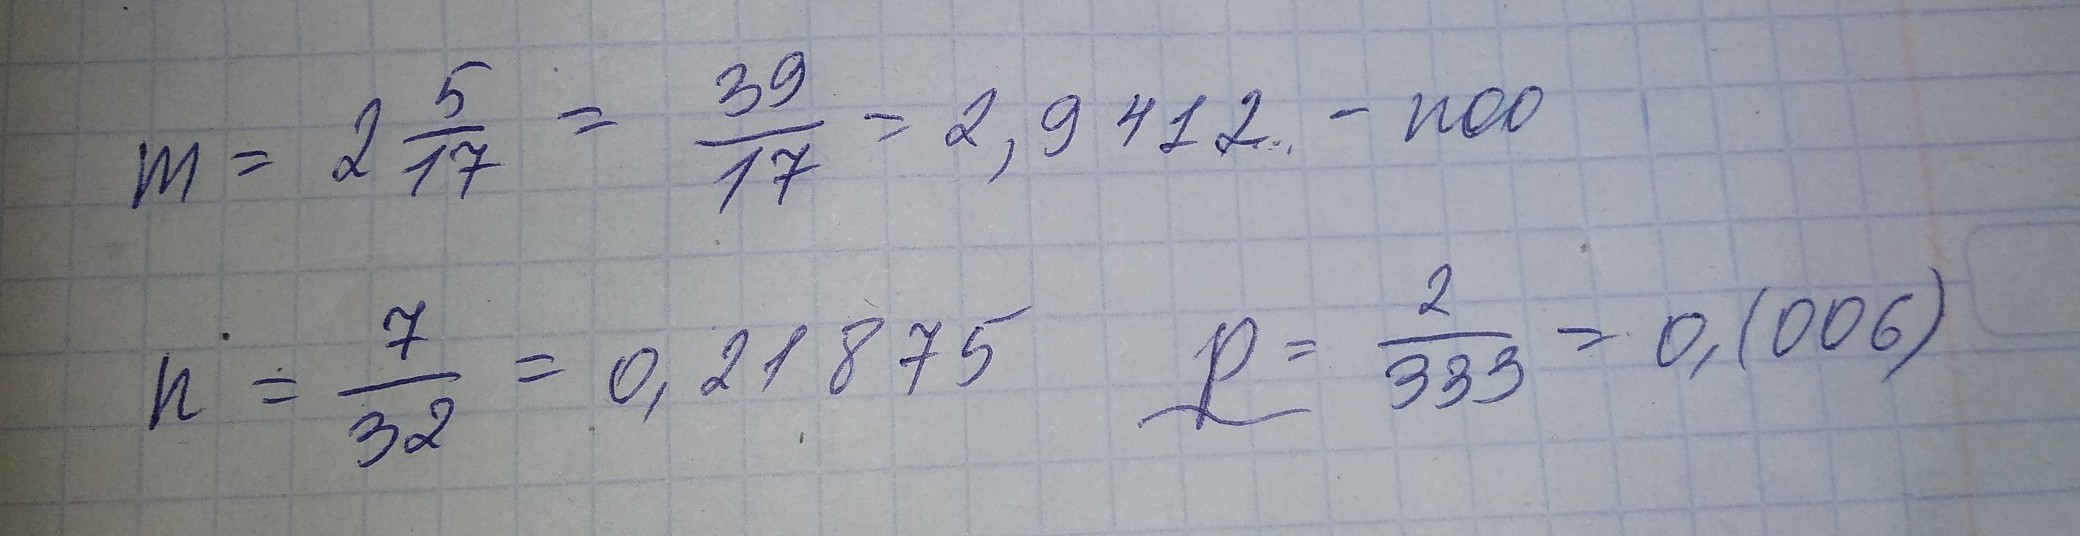 m = 2 5/17 = 39/17 = 2,9412.. -
n = 7/32 = 0,21875 p = 2/333 = 0,(006)